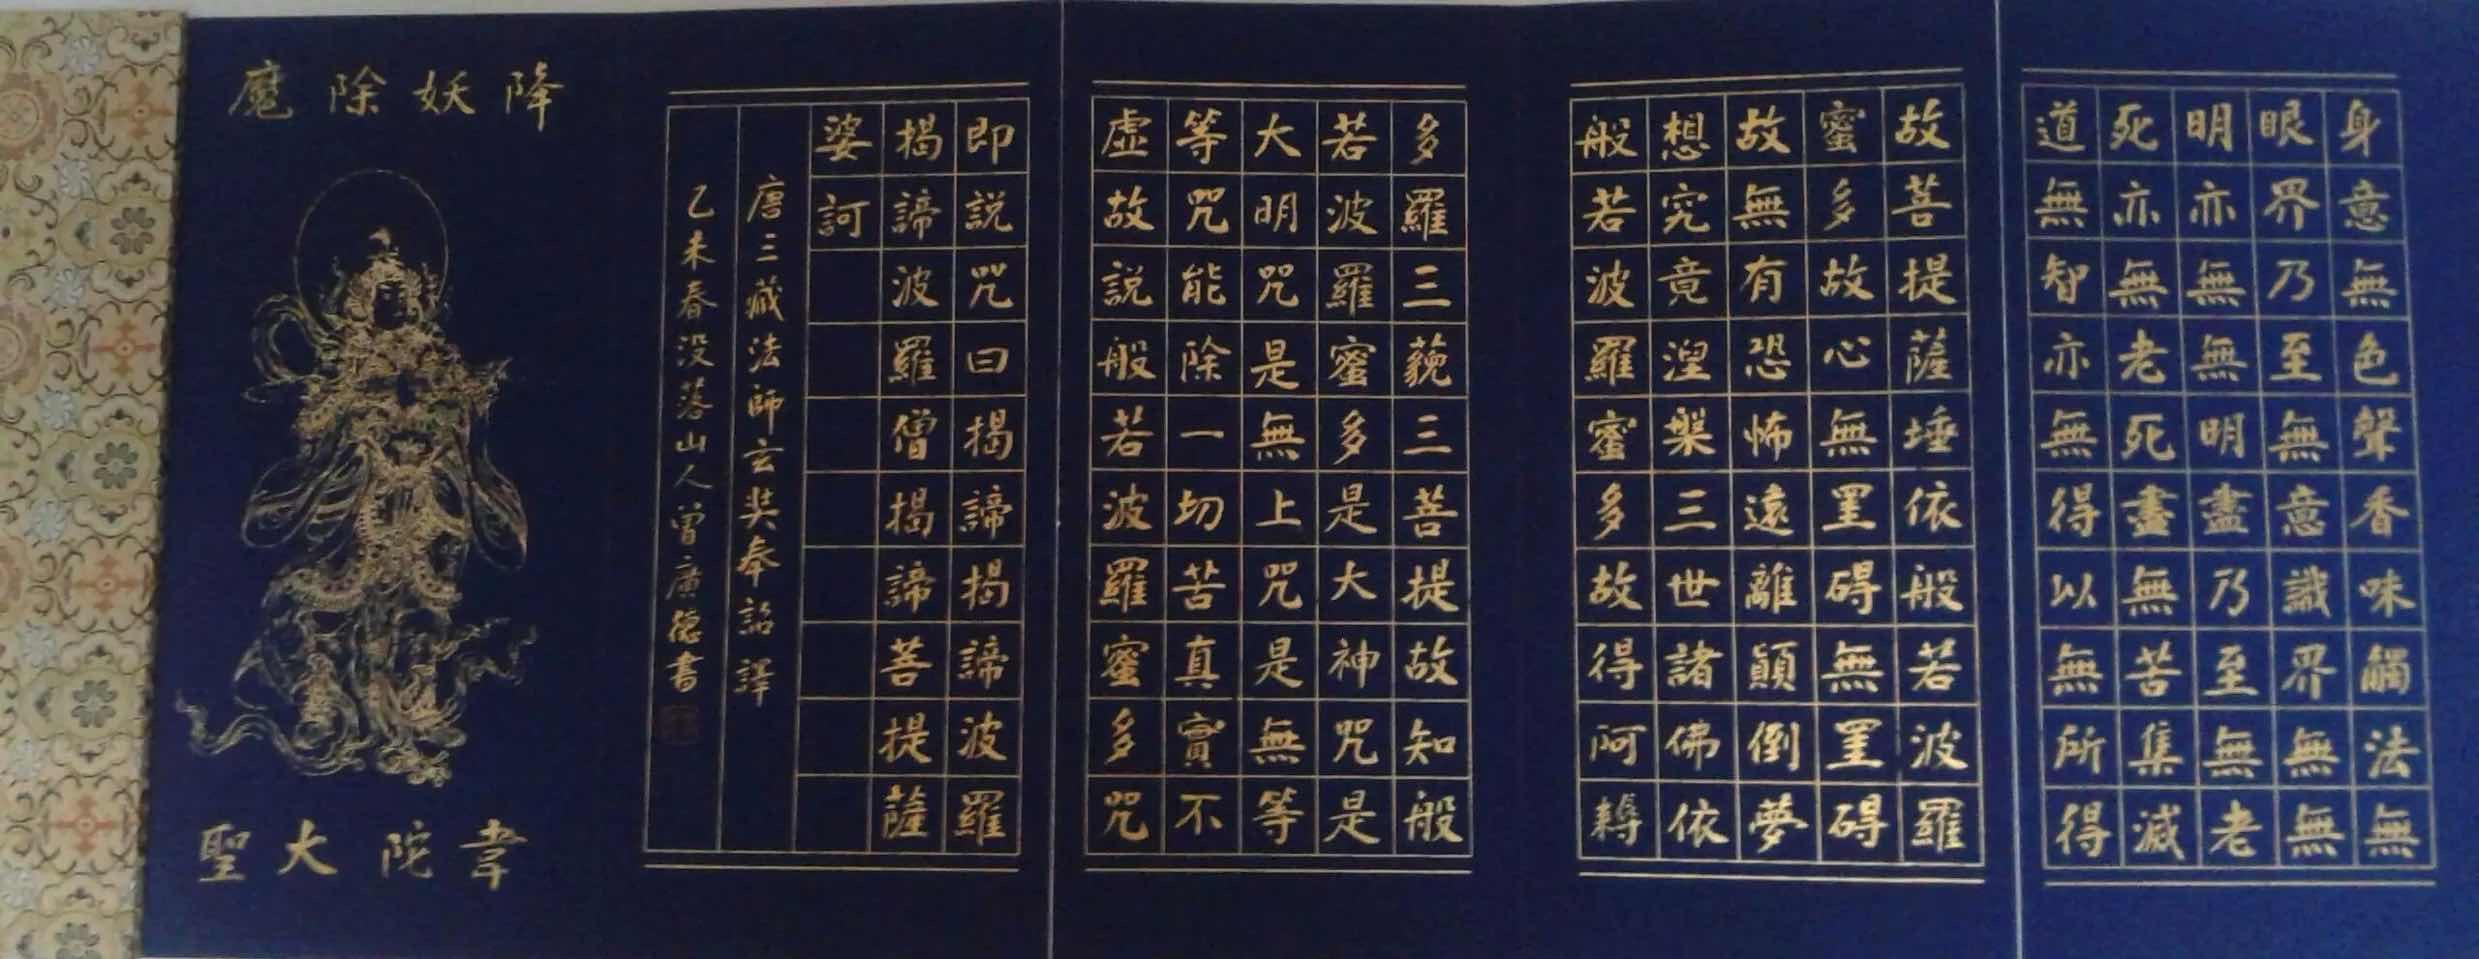 身意無色聲香味觸法無
眼界乃至無意識界無無
明亦無無明盡乃至無老
死亦無老死盡無苦集滅
道無智亦無得以無所得
故菩提薩埵依般若波羅
蜜多故心無罣碍無罣碍
故無有恐怖遠離顛倒夢
想究竟涅槃三世諸佛依
般若波羅蜜多故得阿耨
多羅三藐三菩提故知般
若波羅蜜多是大神咒是
大明咒是無上咒是無等
等咒能除一切苦真實不
虛故說般若波羅蜜多咒
即說咒曰揭諦揭諦波羅
揭諦波羅僧揭諦菩提薩
婆訶
唐三藏法師玄奘奉詔譯
乙未春沒落山人曾廣德書
降妖除魔
韋陀大聖